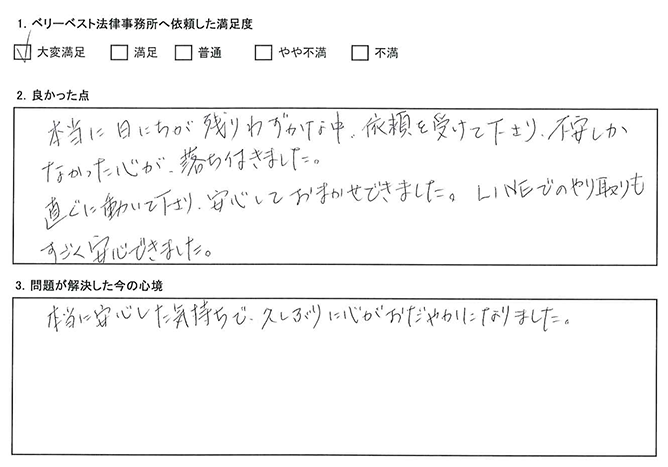 1. ベリーベスト法律事務所へ依頼した満足度
☑ 大変満足 □ 満足 □ 普通 □ やや不満 □ 不満
2. 良かった点
本当に日にちが残りわずかな中、依頼を受けて下さり、不安しか
なかった心が、落ち付きました。
直ぐに動いて下さり、安心しておまかせできました。LINEでのやり取りも
すごく安心できました。
3. 問題が解決した今の心境
本当に安心した気持ちで、久しぶりに心がおだやかになりました。